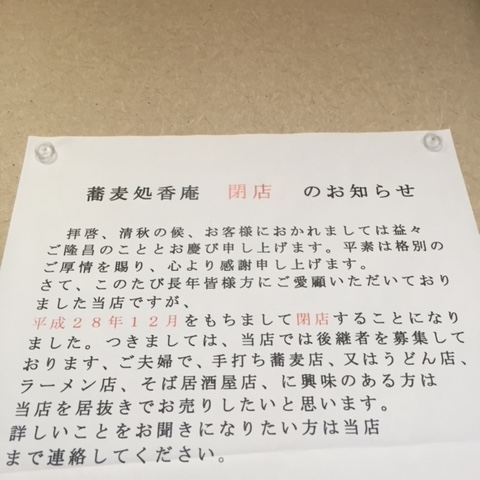 蕎麦処香庵 閉店 のお知らせ
拝啓、清秋の候、お客様におかれましては益々
ご隆昌のこととお慶び申し上げます。平素は格別の
ご厚情を賜り、心より感謝申し上げます。
さて、このたび長年皆様方にご愛顧いただいており
ました当店ですが、
平成28年12月をもちまして閉店することになり
ました。つきましては、当店では後継者を募集して
おります、ご夫婦で、手打ち蕎麦店、又はうどん店、
ラーメン店、そば居酒屋店、に興味のある方は
当店を居抜きでお売りしたいと思います。
詳しいことをお聞きになりたい方は当店
まで連絡してください。